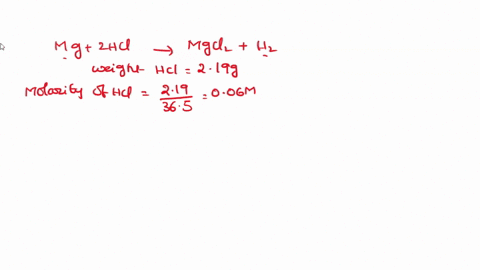 Mg + 2HCl → MgCl₂ + H₂
weight HCl = 2.19g
Molarity of HCl = 2.19/36.5 = 0.06M